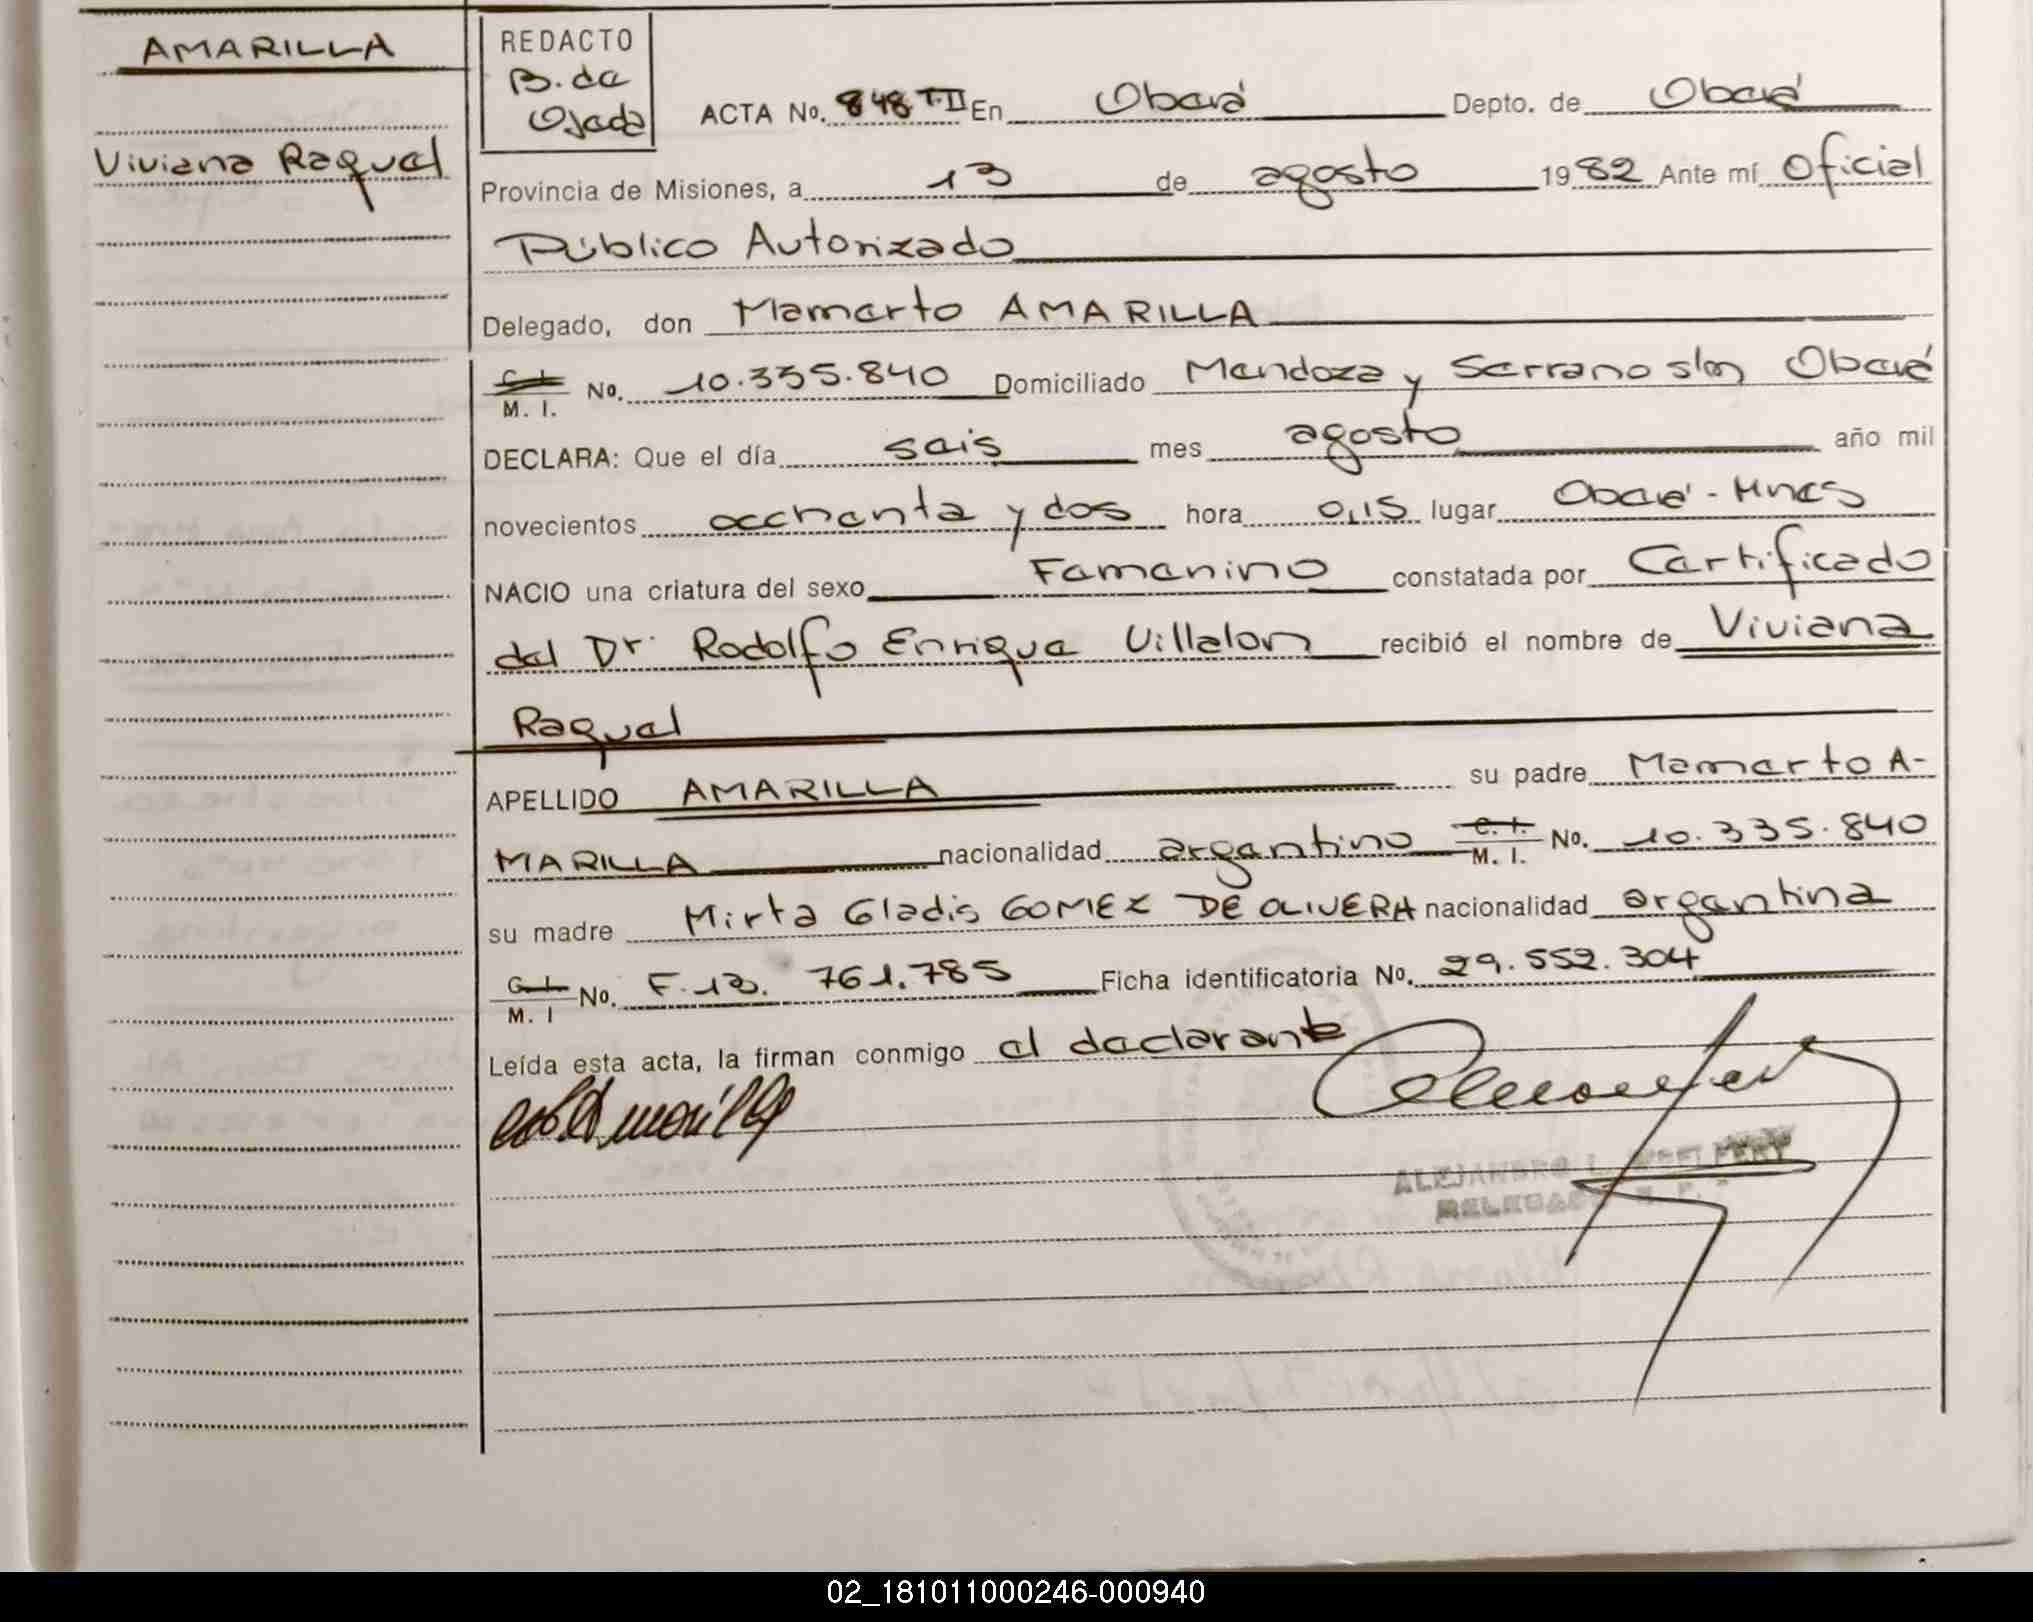 AMARILLA
Viviana Raquel
REDACTO
B. de
Ojeda
ACTA No. 848 T-II En Oberá Depto. de Oberá
Provincia de Misiones, a 13 de agosto 1982 Ante mí Oficial
Público Autorizado
Delegado, don Mamerto AMARILLA
C. I. M. I. No. 10.335.840 Domiciliado Mendoza y Serrano s/n Oberá
DECLARA: Que el día seis mes agosto año mil
novecientos occhenta y dos hora 0,15 lugar Oberá - Mnes
NACIO una criatura del sexo Femenino constatada por Certificado
del Dr. Rodolfo Enrique Villalon recibió el nombre de Viviana
Raquel
APELLIDO AMARILLA su padre Mamerto A-
MARILLA nacionalidad argentino C. I. M. I. No. 10.335.840
su madre Mirta Gladis GOMEZ DE OLIVERA nacionalidad argentina
C. I. M. I No. F. 13. 761.785 Ficha identificatoria No. 29.552.304
Leída esta acta, la firman conmigo el declarante
ALEJANDRO L.
02_181011000246-000940